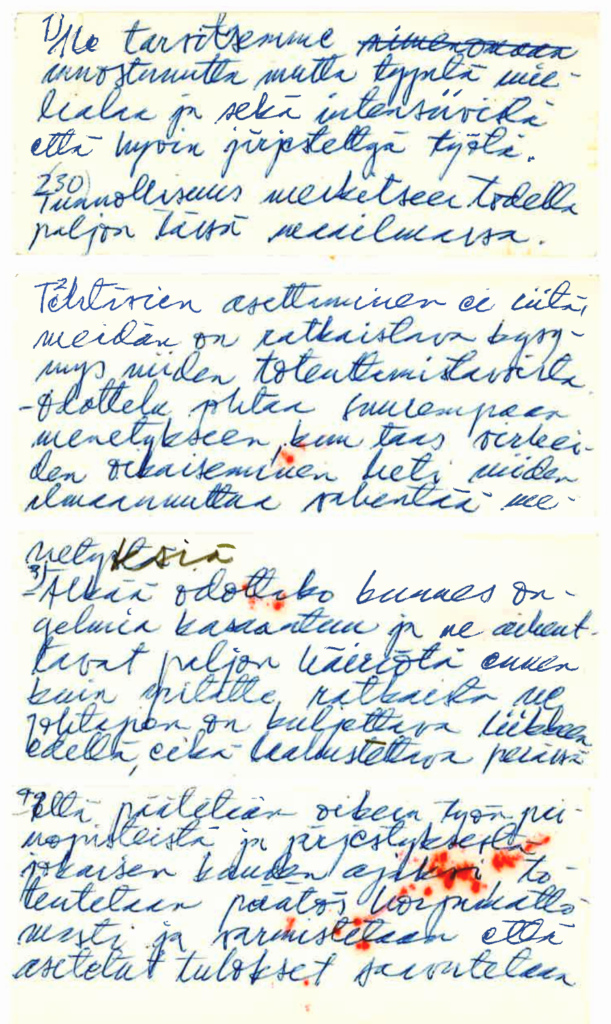 1) Me tarvitsemme nimenomaan
innostunutta mutta tyyntä mie-
lialaa ja sekä intensiivistä
että hyvin järjestettyä työtä.
230)
Tunnollisuus merkitsee todella
paljon tässä maailmassa.
2)
Tehtävien asettaminen ei riitä,
meidän on ratkaistava kysy-
mys niiden toteuttamistavoista
-Odottelu johtaa suurempaan
menetykseen, kun taas virhei-
den oikaiseminen heti niiden
ilmaannuttua vähentää me-
netyksiä
3)
-Älkää odottako kunnes on-
gelmia kasaantuu ja ne aiheut-
tavat paljon häiriötä ennen
kuin yritätte ratkaista ne
Johtajan on kuljettava liikkeen
edellä, eikä laahustettava perässä
Että päätetään oikein työn pai-
nopisteistä ja järjestyksestä
jokaisen kauden ajaksi to-
teutetaan päätös horjumatto-
masti ja varmistetaan että
asetetut tulokset saavutetaan